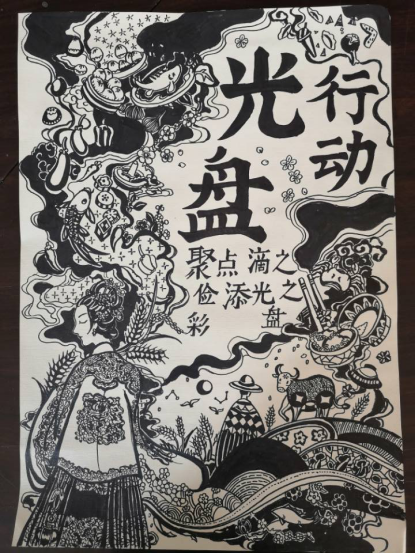 光盘
行动
聚点滴之
俭添光盘之
彩